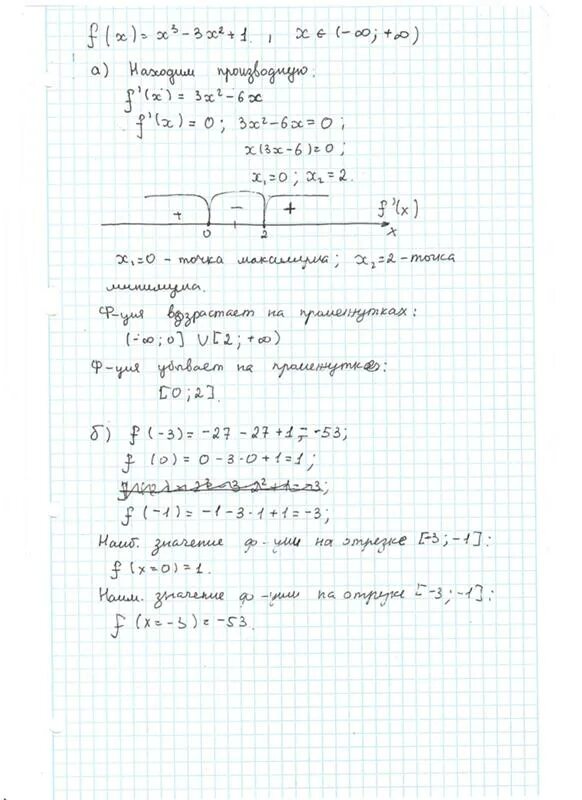 f(x) = x³ - 3x² + 1. , x ∈ (-∞; +∞)
а) Находим производную:
f'(x) = 3x² - 6x
f'(x) = 0 ; 3x² - 6x = 0 ;
x(3x - 6) = 0 ;
x₁ = 0 ; x₂ = 2.
+ - + f'(x)
0 2 x
x₁=0 - точка максимума ; x₂=2 - точка
минимума.
Ф-ция возрастает на промежутках :
(-∞; 0] ∪ [2 ; +∞)
Ф-ция убывает на промежутке:
[0 ; 2].
б) f(-3) = -27 - 27 + 1 = -53;
f (0) = 0 - 3·0 + 1 = 1 ;
f(-1) = -1 - 3·1 + 1 = -3;
Наиб. значение ф-ции на отрезке [-3; -1] :
f (x=0) = 1.
Наим. значение ф-ции на отрезке [-3; -1] :
f (x = -3) = -53.